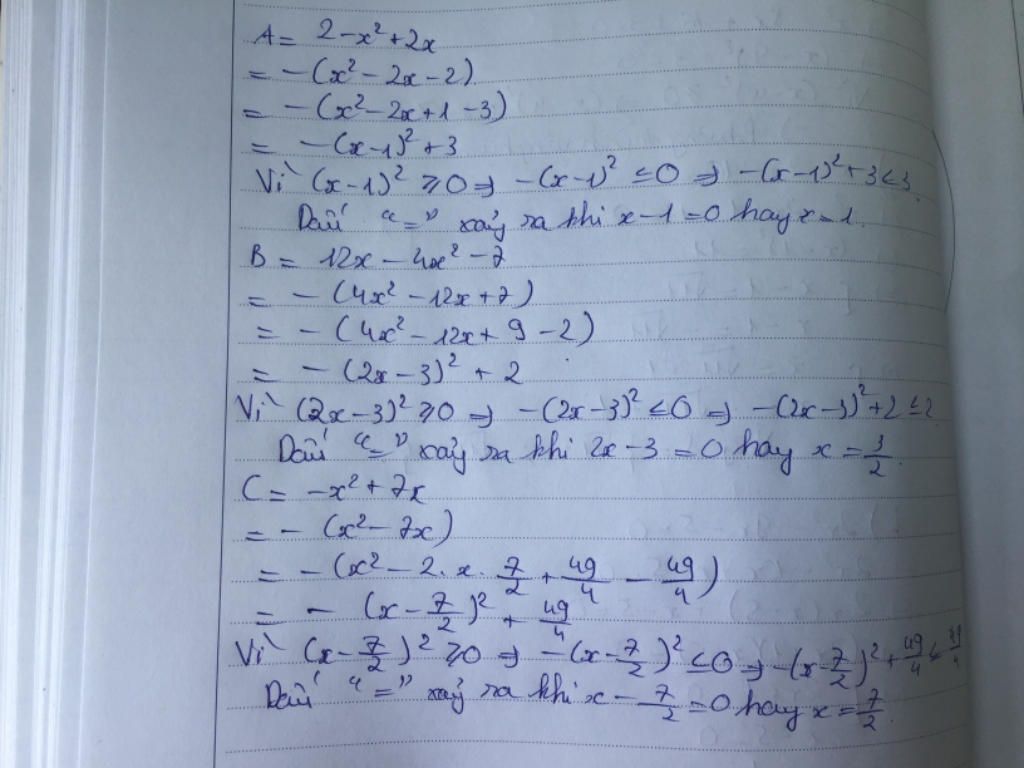 A = 2 - x² + 2x
= -(x² - 2x - 2)
= -(x² - 2x + 1 - 3)
= -(x - 1)² + 3
Vì (x - 1)² ≥ 0 ⇒ -(x - 1)² ≤ 0 ⇒ -(x - 1)² + 3 ≤ 3
Dấu "=" xảy ra khi x - 1 = 0 hay x = 1.
B = 12x - 4x² - 7
= -(4x² - 12x + 7)
= -(4x² - 12x + 9 - 2)
= -(2x - 3)² + 2
Vì (2x - 3)² ≥ 0 ⇒ -(2x - 3)² ≤ 0 ⇒ -(2x - 3)² + 2 ≤ 2
Dấu "=" xảy ra khi 2x - 3 = 0 hay x = 3/2.
C = -x² + 7x
= -(x² - 7x)
= -(x² - 2. x. 7/2 + 49/4 - 49/4)
= -(x - 7/2)² + 49/4
Vì (x - 7/2)² ≥ 0 ⇒ -(x - 7/2)² ≤ 0 ⇒ -(x - 7/2)² + 49/4 ≤ 49/4
Dấu "=" xảy ra khi x - 7/2 = 0 hay x = 7/2.